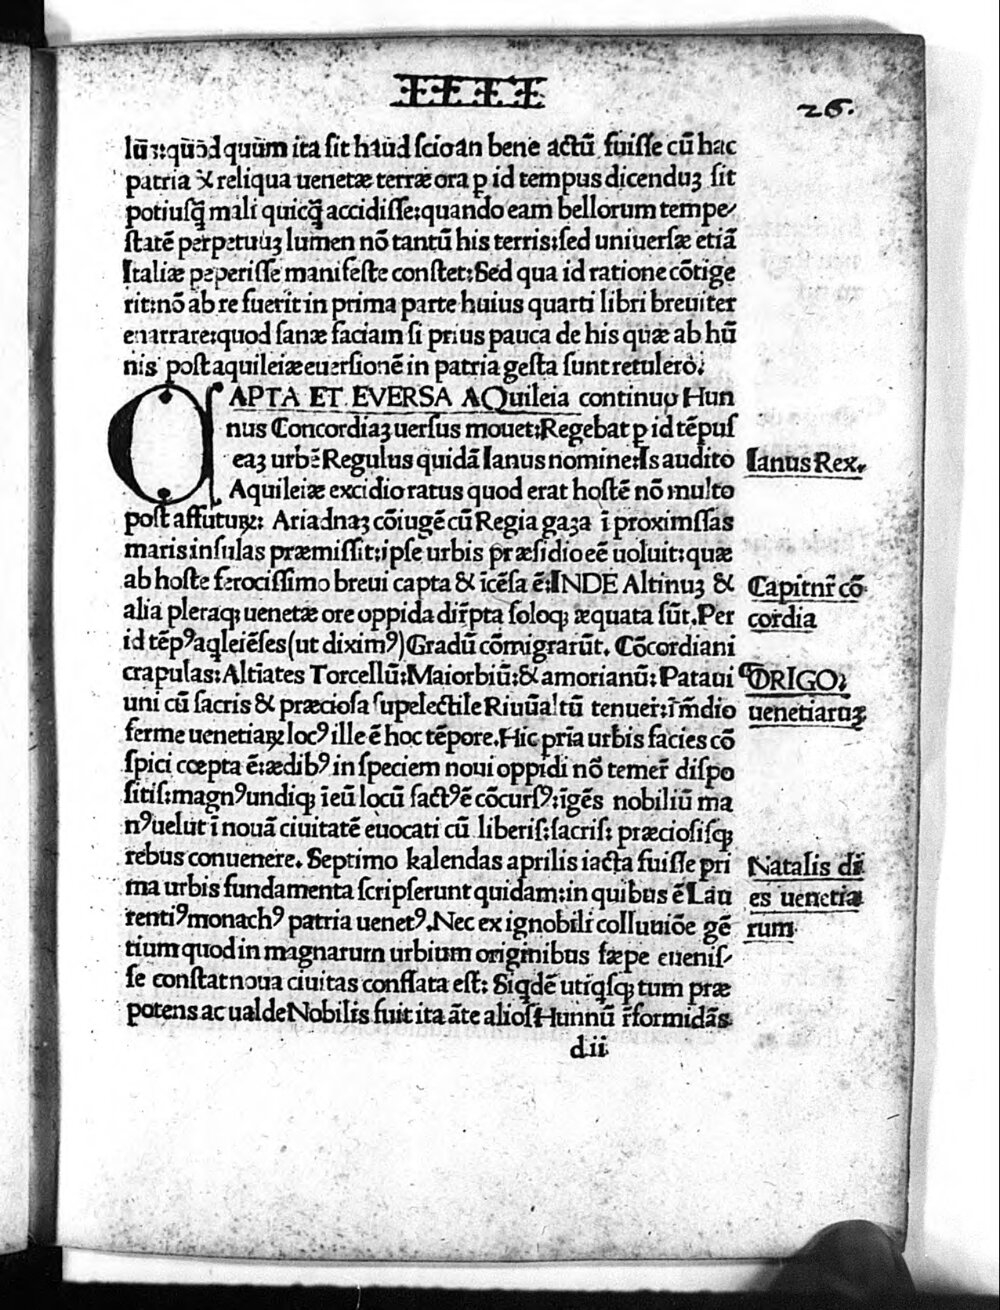 26.
lūꝫ: qūod quūm ita sit haud scio an bene actū fuisse cū hac
patria & reliqua uenetæ terræ ora ꝑ id tempus dicenduꝫ sit
potiusq̄ mali quicq̄ accidisse: quando eam bellorum tempe/
statē perpetuuꝫ lumen nō tantū his terris: sed uniuersæ etiā
Italiæ peperisse manifeste constet: Sed qua id ratione cōtige
rit: nō ab re fuerit in prima parte huius quarti libri breuiter
enarrare: quod sanæ faciam si prius pauca de his quæ ab hū
nis post aquileiæ euersionē in patria gesta sunt retulero.
CAPTA ET EVERSA AQuileia continuo Hun
nus Concordiaꝫ uersus mouet: Regebat ꝑ id tēpus
eaꝫ urbē Regulus quidā Ianus nomine: Is audito
Ianus Rex.
Aquileiæ excidio ratus quod erat hostē nō multo
post affuturꝝ: Ariadnaꝫ cōiugē cū Regia gaza ī proximssas
maris insulas præmissit: ipse urbis præsidio eē uoluit: quæ
ab hoste ferocissimo breui capta & īcēsa ē: INDE Altinuꝫ &
Capitnr̄ cō
alia pleraqꝫ uenetæ ore oppida dir̄pta soloqꝫ æquata sūt. Per
cordia
id tēpꝰ aqleiēses (ut diximꝰ) Gradū cōmigrarūt. Cōcordiani
crapulas: Altiates Torcellū: Maiorbiū: & amorianū: Pataui
ORIGO
uni cū sacris & præciosa supelectile Riuūaltū tenuer̄: īm̄dio
uenetiaruꝫ
ferme uenetiaꝝ locꝰ ille ē hoc tēpore. Hic pr̄ia urbis facies cō
spici cœpta ē: ædibꝰ in speciem noui oppidi nō temer̄ dispo
sitis: magnꝰ undiqꝫ īeū locū factꝰ ē cōcursꝰ: īgēs nobiliū ma
nꝰ uelut ī nouā ciuitatē euocati cū liberis: sacris: præciosisqꝫ
rebus conuenere. Septimo kalendas aprilis iacta fuisse pri
Natalis di
ma urbis fundamenta scripserunt quidam: in quibus ē Lau
es uenetia
rentiꝰ monachꝰ patria uenetꝰ. Nec ex ignobili colluuiōe gē
rum
tium quod in magnarum urbium originibus sæpe euenis/
se constat noua ciuitas conflata est: Siqdē utiqsqꝫ tum præ
potens ac ualde Nobilis fuit ita āte alios Hunnū r̄formidās
dii